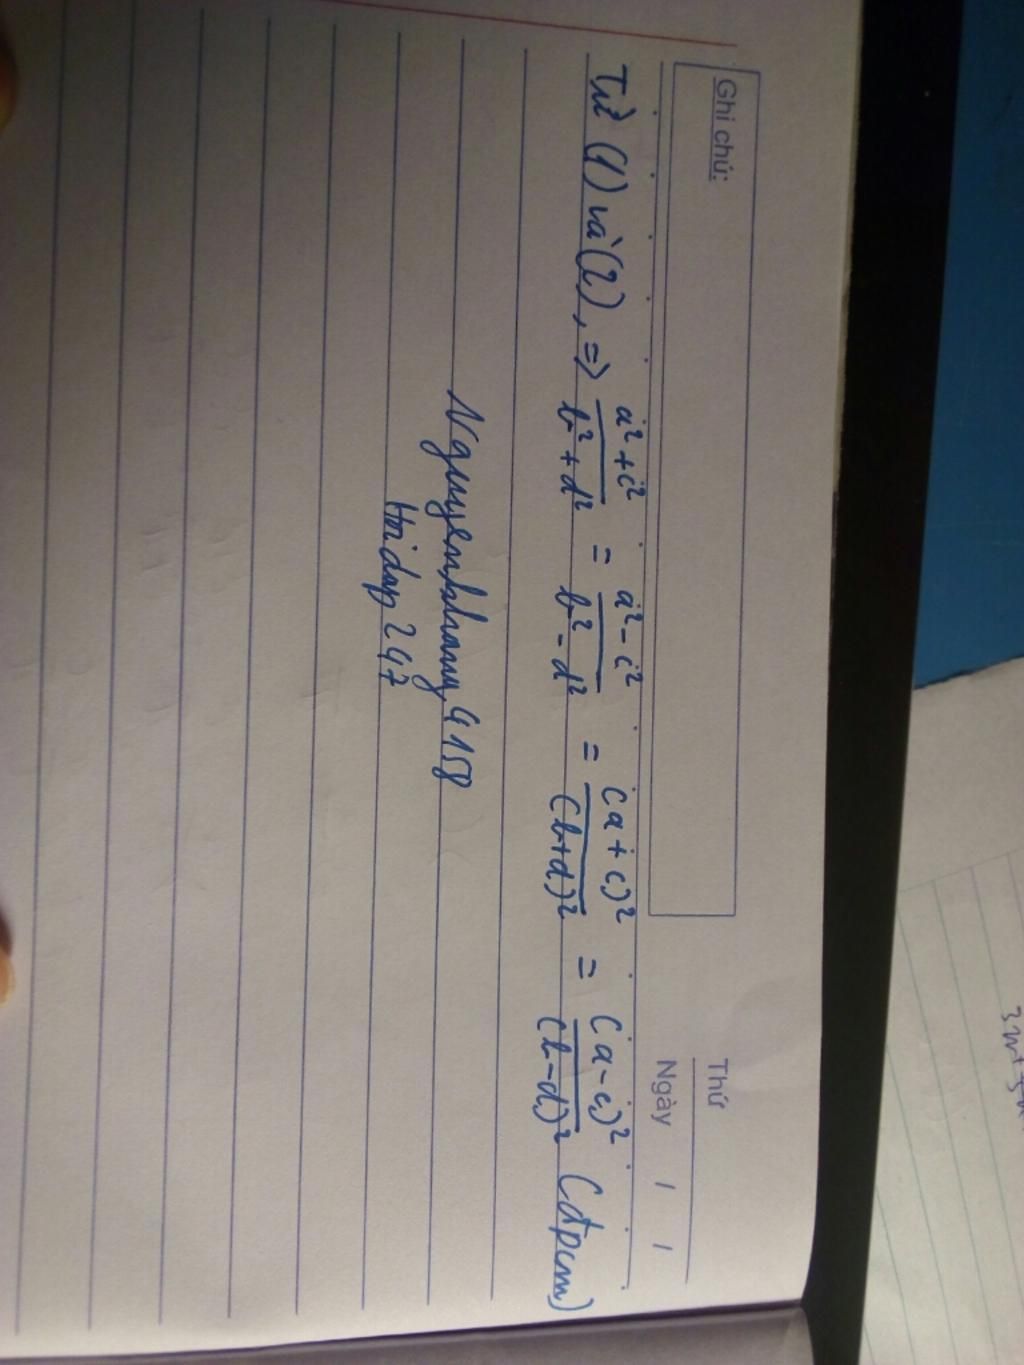 Ghi chú:
Thứ
Ngày / /
Từ (1) và (2), => a²+c²/b²+d² = a²-c²/b²-d² = (a+c)²/(b+d)² = (a-c)²/(b-d)² (đpcm)
Nguyenkhang4158
Hoidap247